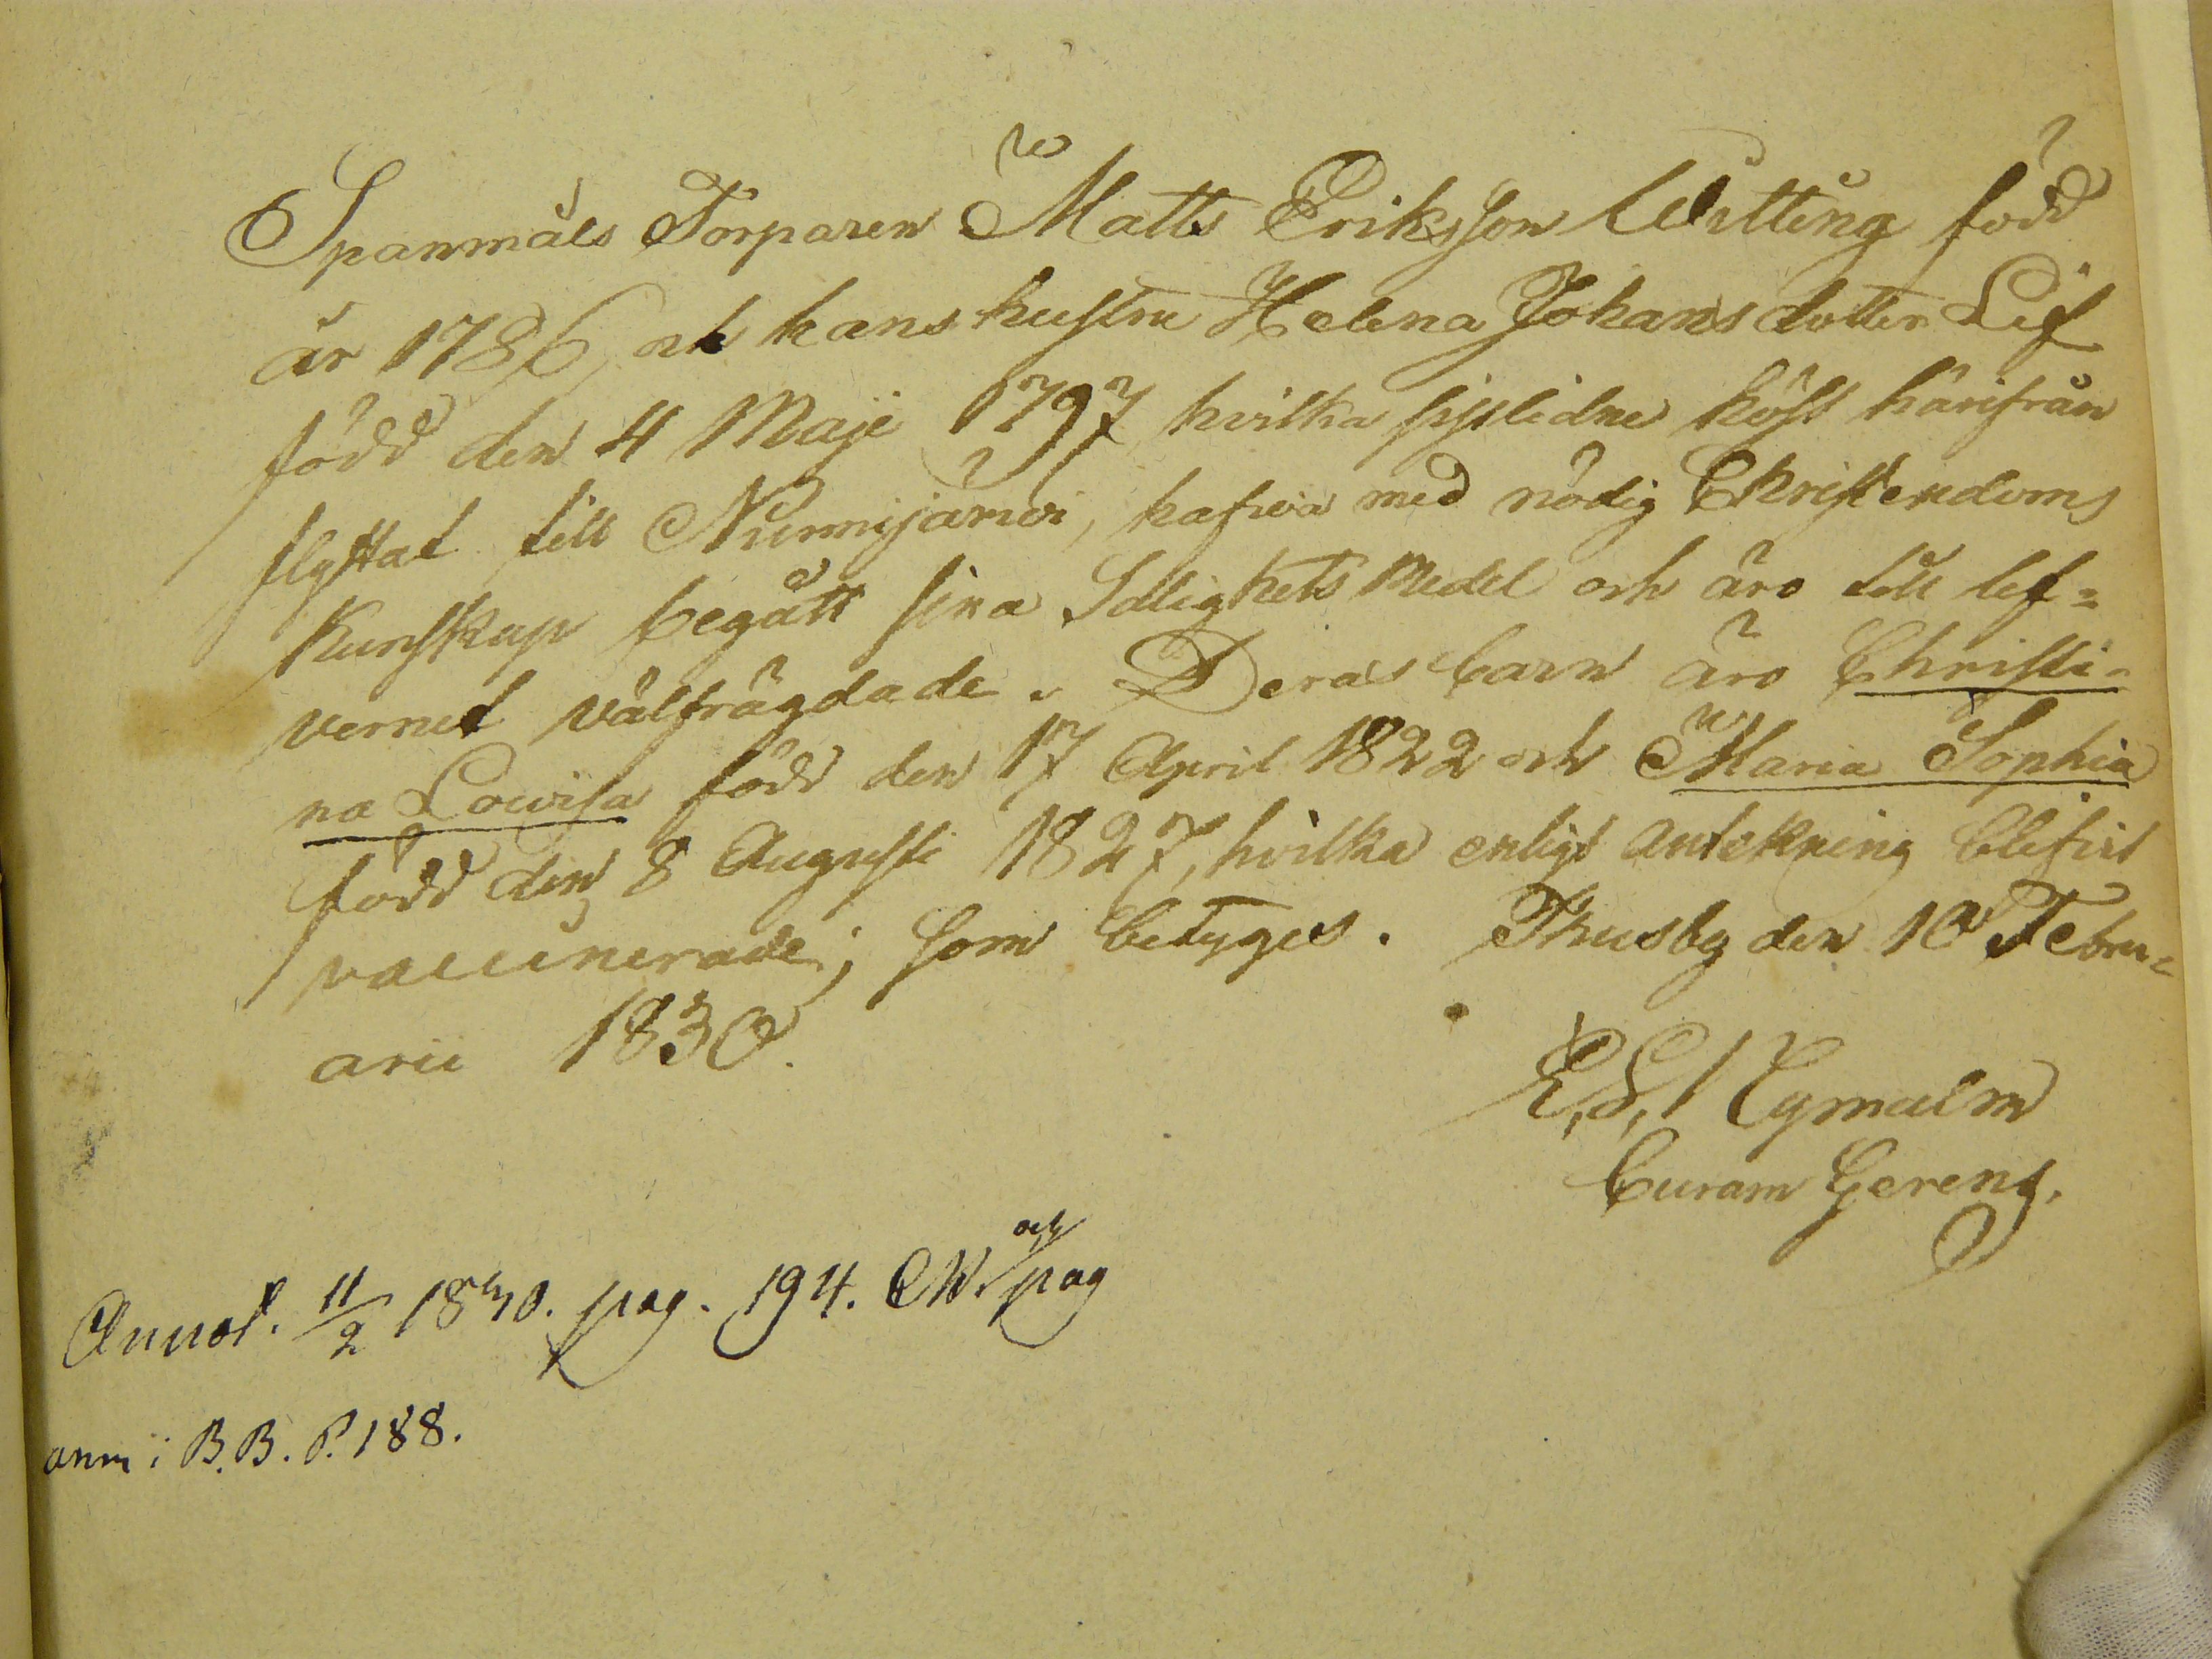 Spanmåls Torparen Matts Eriksson Witting född
år 1786, och hans hustru Helena Johans dotter Lif
född den 4 Maji 1797 hvilka sistlidne höst härifrån
flyttat till Nurmijärvi, hafva med nödig Christendoms
Kunskap begått sina Salighets Medel och äro till lef=
vernet välfrägdade. Deras barn äro Christi-
na Lowisa född den 17 April 1822 och Maria Sophia
född den 8 Augusti 1827, hvilka enligt antekning blifvit
vaccinerade; som betyges. Thusby den 10 Febru=
arii 1830.
E. S.
Curam Gerens.
Annot. 11/2 1830. pag. 194. och pag
anm i B.B. P. 188.